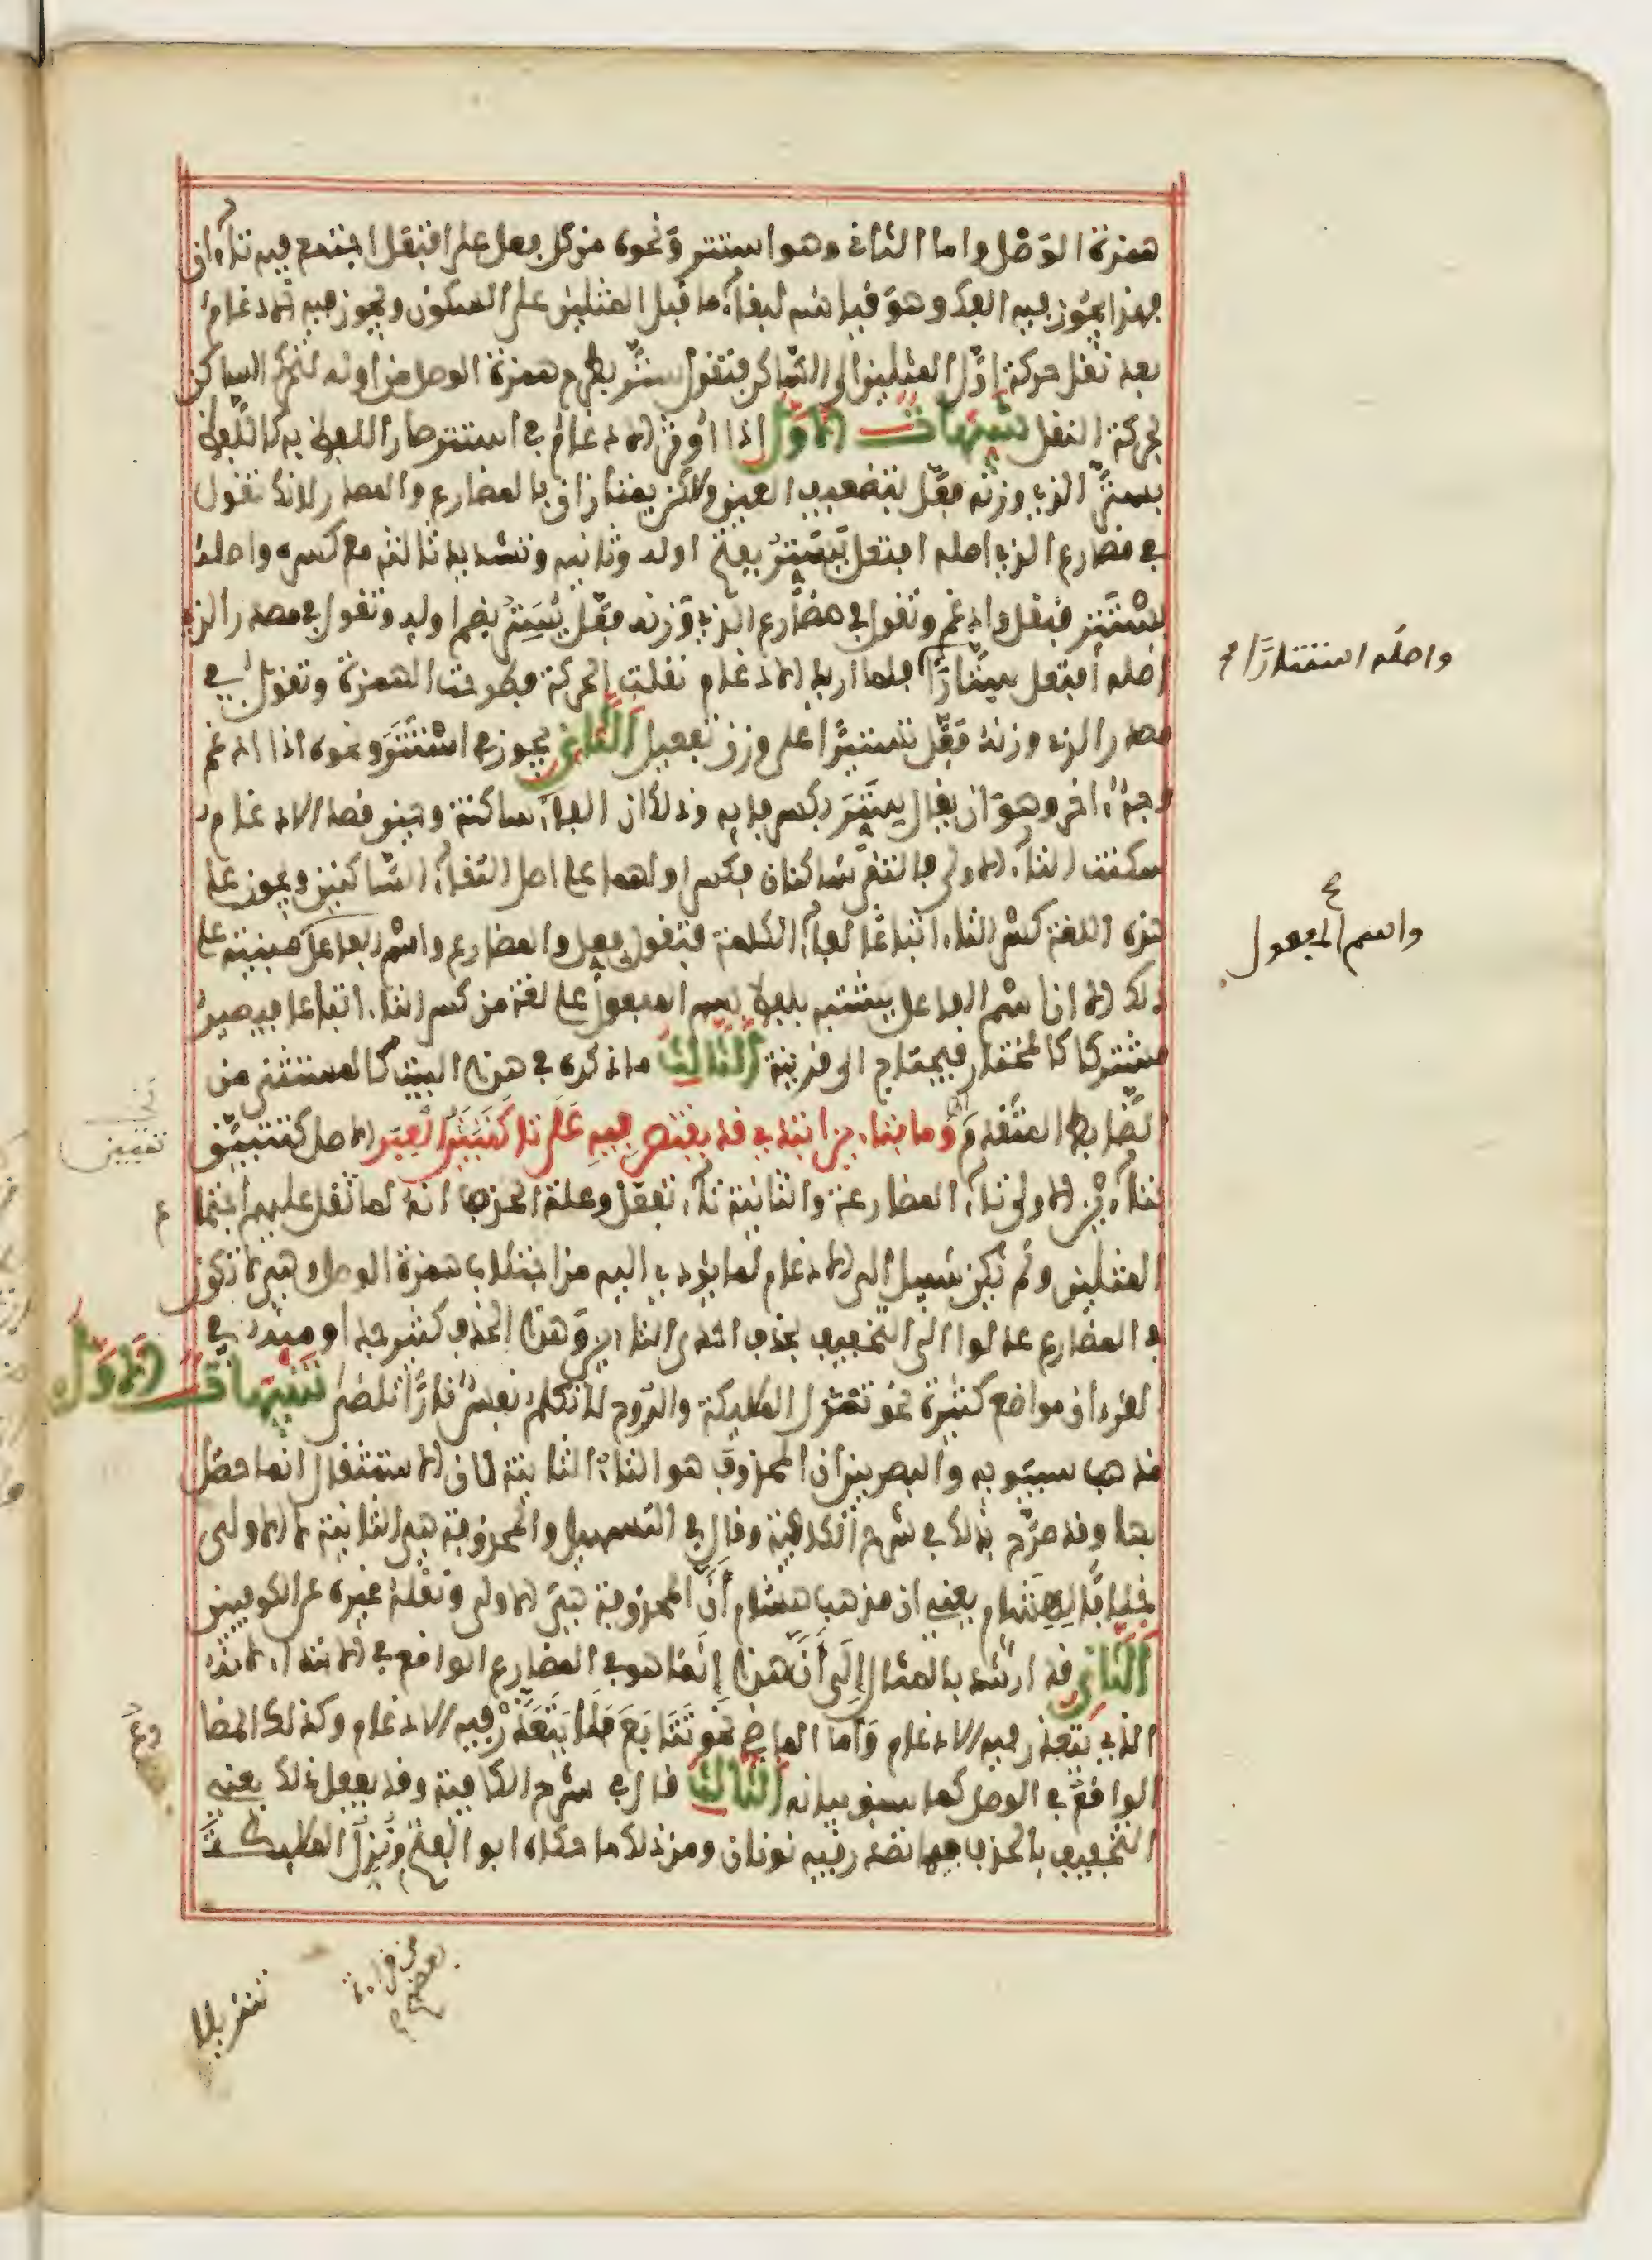 همزة الوصل واما الثانى وهو استتر ونحوه من كل فعل على افتعل اجتمع فيه تاءان
فهذا يجوز فيه الفك وهو قياسه لبقاء ما قبل المثلين على السكون ويجوز فيه الادغام
بعد نقل حركة اول المثلين الى الساكن فتقول ستر بطرح همزة الوصل من اوله لتحرك الساكن
بحركة النقل تنبيهات الاول اذا اوثر الادغام في استتر صار اللفظ به كاللفظ
بستر الذي وزنه فعل بتضعيف العين ولاكن يمتازان بالمضارع والمصدر لانك تقول
في مضارع الذي اصله افتعل يستر بفتح اوله وثانيه وتشديد ثالثه مع كسره واصله
يستتر فنقل وادغم وتقول في مضارع الذي وزنه فعل يستر بضم اوله وتقول في مصدر الذي
اصله افتعل ستارا فلما اريد الادغام نقلت الحركة فطرحت الهمزة وتقول في
مصدر الذي وزنه فعل تستيرا على وزن تفعيل الثانى يجوز في استتر ونحوه اذا ادغم
وجه اخر وهو ان يقال ستر بكسر فايه وذلك ان الفاء ساكنة وحين قصد الادغام
سكنت التاء الاولى فالتقى ساكنان فكسر اولهما على اصل التقاء الساكنين ويجوز على
هذه اللغة كسر التاء اتباعا لفاء الكلمة فتقول فعل والمضارع واسم الفاعل مبنية على
ذلك الا ان اسم الفاعل يشتبه بلفظ اسم المفعول على لغة من كسر التاء اتباعا فيصير
مشتركا كالمختار فيحتاج الى قرينة الثالث ما ذكره في هذا البيت كالمستثنى من
الضابط المتقدم وما بتاءين ابتدي قد يقتصر فيه على تا كتبين العبر الاصل كتتبين
بتاءين الاولى تاء المضارعة والثانية تاء تفعل وعلة الحذف انه لما ثقل عليهم اجتماع
المثلين ولم يكن سبيل الى الادغام لما يؤدي اليه من اجتلاب همزة الوصل وهي لا تكون
في المضارع عدلوا الى التخفيف بحذف احدى التاءين وهذا الحذف كثير جدا ومنه في
القرءان مواضع كثيرة نحو تنزل الملايكة والروح لا تكلم نفس نارا تلظى تنبيهات الاول
مذهب سيبويه والبصريين ان المحذوف هو التاء الثانية لان الاستثقال انما حصل
بها وقد صرح بذلك في شرح الكافية وقال في التسهيل والمحذوفة هي الثانية لا الاولى
خلافا لهشام يعني ان مذهب هشام ان المحذوفة هي الاولى ونقله غيره عن الكوفيين
الثانى قد ارشد بالمثال الى ان هذا انما هو في المضارع الواقع في الابتداء لانه
الذي يتعذر فيه الادغام واما الماضي نحو تتابع فلا يتعذر فيه الادغام وكذلك المضا
الواقع في الوصل كما سبق بيانه الثالث قال في شرح الكافية وقد يفعل ذلك يعني
التخفيف بالحذف فيما تصدر فيه نونان ومن ذلك ما حكاه ابو الفتح ونزل الملايكة
واصله استتارا
واسم المفعول
من قراءة
بعضهم
تنزيلا